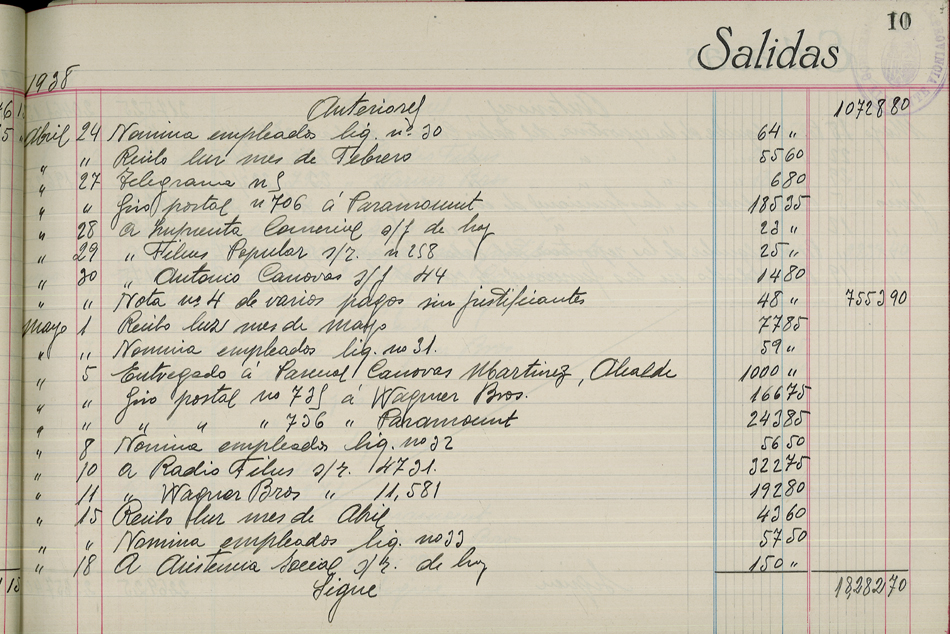 10
Salidas
1938
Anteriores 10728 80
Abril 24 Nomina empleados liq. nº 30 64 "
" " Recibo luz mes de Febrero 55 60
" 27 Telegrama n 5 6 80
" " Giro postal nº 706 á Paramount 185 35
" 28 A Imprenta Comercial s/f de hoy 23 "
" 29 " Films Popular s/r. n 258 25 "
" 30 " Antonio Canovas s/f 44 14 80
" " Nota nº 4 de varios pagos sin justificantes 48 " 7553 90
Mayo 1 Recibo luz mes de mayo 77 85
" " Nomina empleados liq. nº 31. 59 "
" 5 Entregado á Canovas Martinez, Alcalde 1000 "
" " Giro postal nº 735 á Wagner Bros. 166 75
" " " " " 736 " Paramount 243 85
" 8 Nomina empleados liq. nº 32 56 50
" 10 A Radio Films s/r. 4731. 322 75
" 11 " Wagner Bros " 11,581 192 80
" 15 Recibo luz mes de Abril 43 60
" " Nomina empleados liq. nº 33 57 50
" 18 A Asistencia Social s/r. de hoy 150 "
Sigue 18,282 70